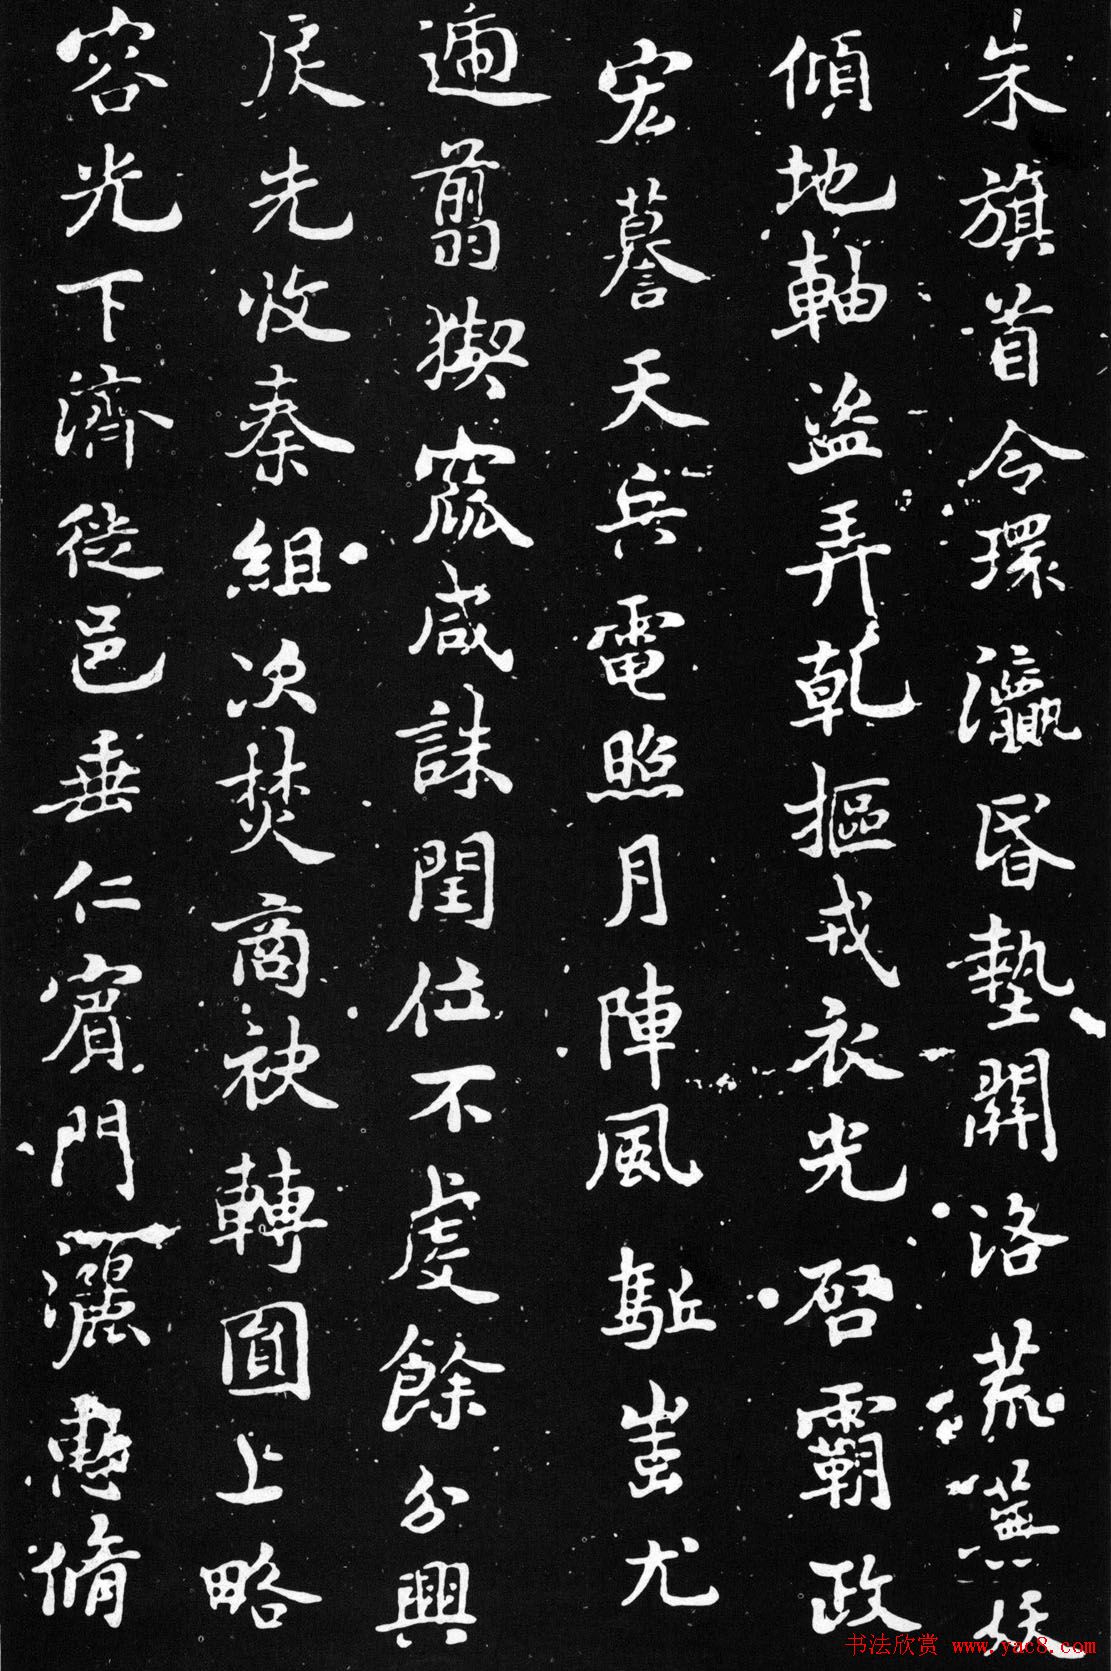 朱旗首令環瀛昏墊關洛荒蕪妖
傾地軸盜弄乾樞戎衣光啓霸政
宏謩天兵電照月陣風駈蚩尤
遄翦猰窳咸誅閏位不虔餘分興
戾先收秦組次焚商袂轉圓上略
容光下濟徙邑垂仁賓門灑惠脩
书法欣赏 www.yac8.com